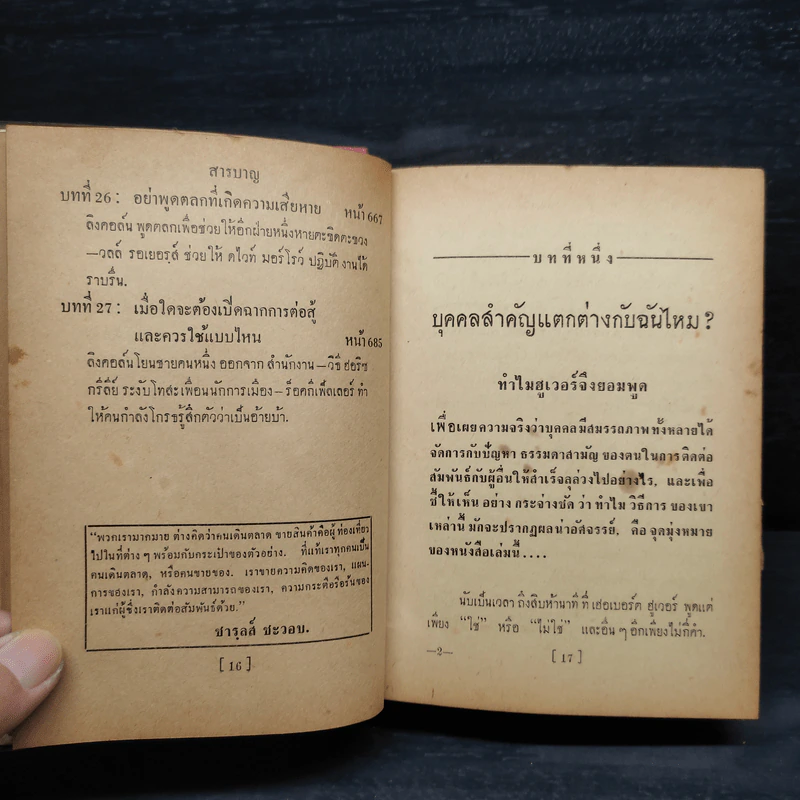 สารบาญ
บทที่ 26 : อย่าพูดตลกที่เกิดความเสียหาย
หน้า 667
ลิงคอล์น พูดตลกเพื่อช่วยให้อีกฝ่ายหนึ่งหายตะขิดตะขวง
—วลล์ รอเยอรส์ ช่วยให้ ดไวท์ มอร์โรว์ ปฏิบัติงานได้
ราบรื่น.
บทที่ 27 : เมื่อใดจะต้องเปิดฉากการต่อสู้
และควรใช้แบบไหน
หน้า 685
ลิงคอล์นโยนชายคนหนึ่ง ออกจาก สำนักงาน—วิธี ฮอริซ
กรีลีย์ ระงับโทสะเพื่อนนักการเมือง—ร็อคกี้เฟ็ลเลอร์ ทำ
ให้คนกำลังโกรธรู้สึกตัวว่าเป็นอ้ายบ้า.
"พวกเรามากมาย ต่างคิดว่าคนเดินตลาด ขายสินค้าคือผู้ ท่องเที่ยว
ไปในที่ต่าง ๆ พร้อมกับกระเป๋าของตัวอย่าง. ที่แท้เราทุกคนเป็น
คนเดินตลาด, หรือคนขายของ. เราขายความคิดของเรา, แผน-
การของเรา, กำลังความสามารถของเรา, ความกระตือรือร้นของ
เราแก่ผู้ซึ่งเราติดต่อสัมพันธ์ด้วย."
ชารลส์ ชะวอบ.
[ 16 ]
บทที่หนึ่ง
บุคคลสำคัญแตกต่างกับฉันไหม ?
ทำไมฮูเวอร์จึงยอมพูด
เพื่อเผยความจริงว่าบุคคลมีสมรรถภาพทั้งหลายได้
จัดการกับปัญหา ธรรมดาสามัญ ของตนในการ ติดต่อ
สัมพันธ์กับผู้อื่นให้สำเร็จลุล่วงไปอย่างไร, และเพื่อ
ชี้ให้เห็น อย่าง กระจ่างชัด ว่า ทำไม วิธีการ ของเขา
เหล่านี้ มักจะปรากฏผลน่าอัศจรรย์, คือ จุดมุ่งหมาย
ของหนังสือเล่มนี้ . . . .
นับเป็นเวลา ถึงสิบห้านาที ที่ เฮอเบอร์ต ฮูเวอร์ พูดแต่
เพียง "ใช่" หรือ "ไม่ใช่" และอื่น ๆ อีกเพียงไม่กี่คำ.
—2—
[ 17 ]